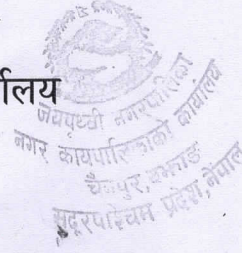 र्यालय
जयपृथ्वी नगरपालिका
नगर कार्यपालिकाको कार्यालय
चैनपुर, बझाङ
सुदूरपश्चिम प्रदेश, नेपाल